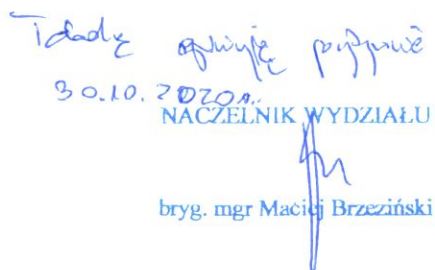 opiniuję pozytywnie
30.10.2020r.
NACZELNIK WYDZIAŁU
bryg. mgr Maciej Brzeziński